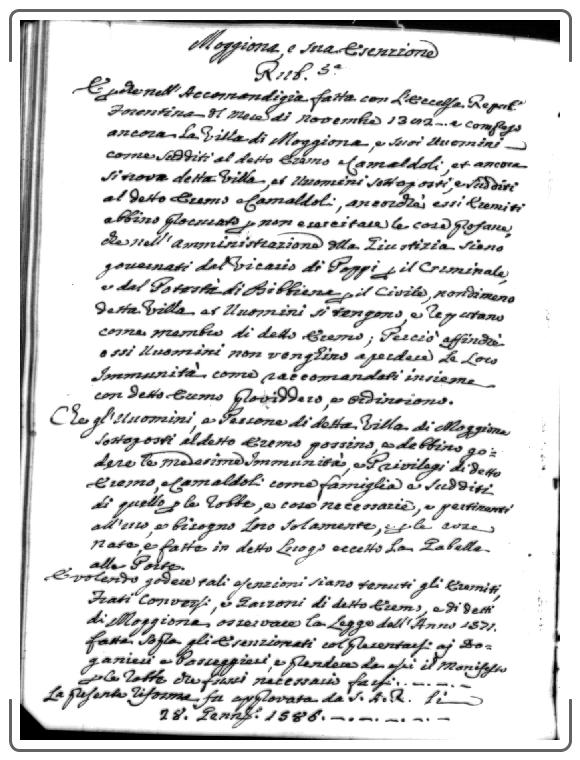 Moggiona, e sua Esenzione
Rub. 3.a
E perche nell'Accomandigia fatta con l'Eccelsa Repub.
Fiorentina del Mese di Novembre 1382 e compreso
ancora la Villa di Moggiona, e suoi Uomini
come sudditi al detto Eremo e Camaldoli, et ancora
si trova detta Villa, et Uomini sottoposti e sudditi
al detto Eremo e Camaldoli, ancorchè essi Eremiti
abbino procurato per non esercitare le cose profane,
che nell'amministrazione della Giustizia sieno
governati dal Vicario di Poppi per il Criminale,
e dal Potestà di Bibbiena per il Civile, nondimeno
detta Villa et Uomini si tengono, e reputano
come membro di detto Eremo; Perciò affinchè
essi Uomini non venghino a perdere le loro
Immunità come raccomandati insieme
con detto Eremo providdero, e ordinorono.
Che gl'Uomini, e Persone di detta Villa di Moggiona
sottoposti al detto Eremo possino, e debbino go=
dere le medesime Immunità, e Privilegi di detto
Eremo, e Camaldoli come famiglia e sudditi
di quello per le robbe, e cose necessarie, e pertinenti
all'uso, e bisogno loro solamente, e per le cose
nate, e fatte in detto Luogo eccetto la Gabella
alle Porte.
E volendo godere tali esenzioni siano tenuti gli Eremiti,
Frati Conversi, e Garzoni di detto Eremo, e di detti
di Moggiona osservare la Legge dell'Anno 1571.
fatta sopra gli Esenzionati col presentarsi a i Do=
ganieri e Passeggieri, e prendere da essi il Manifesto
per le robbe che fussi necessario farsi.
La presente riforma fu approvata da S. A. R. li
28. Genn.o 1586.